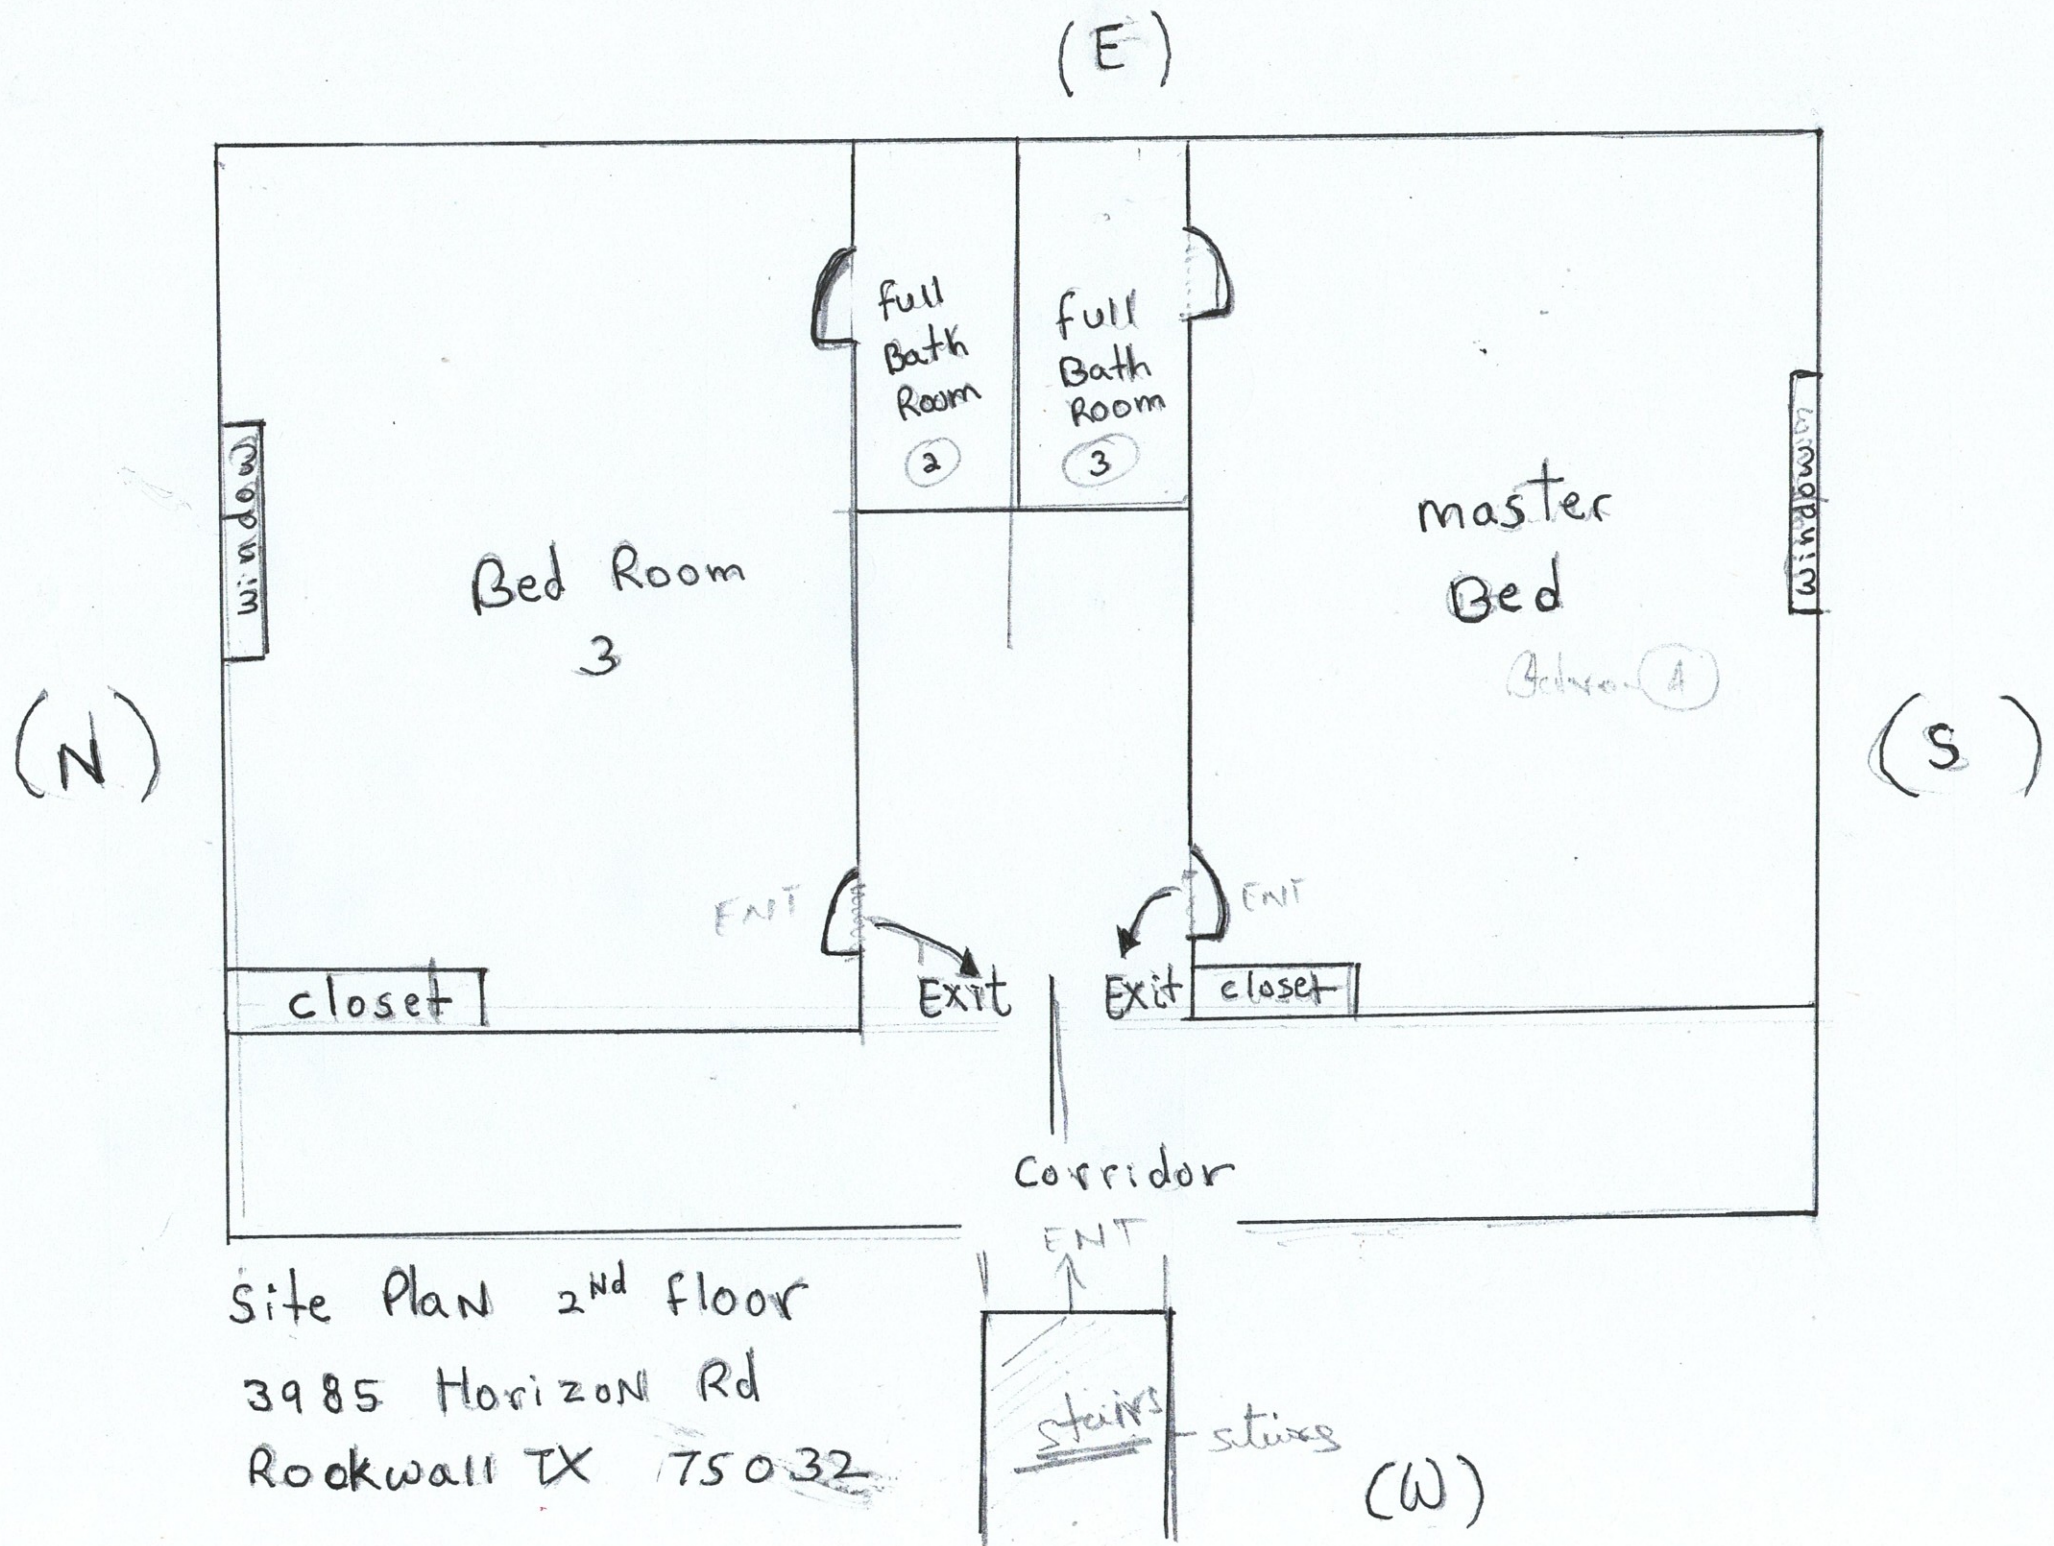 (E)
full
Bath
Room
2
full
Bath
Room
3
window
window
master
Bed
Bed Room
3
4
(N)
(S)
ENT
ENT
closet
Exit
Exit
closet
Corridor
ENT
Site PlaN 2Nd floor
3985 HorizoN Rd
Rockwall TX 75032
stairs
stairs
(W)